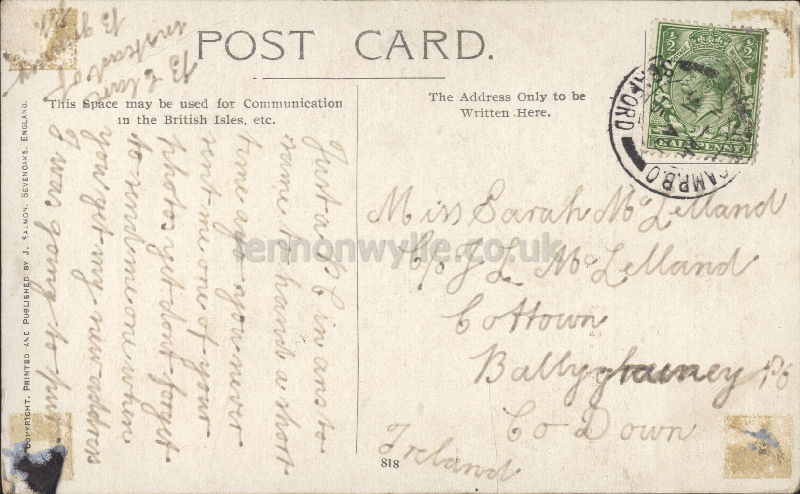 POST CARD.
This Space may be used for Communication
in the British Isles, etc.
The Address Only to be
Written Here.
½ ½
HALFPENNY
Miss Sarah McLelland
C/o J L McLelland
Cottown
Co Down
Ireland
Just a P C in ans to
same to hand a short
time ago you never
sent me one of your
photos yet dont forget
to send me one when
you get my new address
I was going to put
instead of
COPYRIGHT, PRINTED AND PUBLISHED BY J. SALMON, SEVENOAKS, ENGLAND.
818
lennonwylie.co.uk